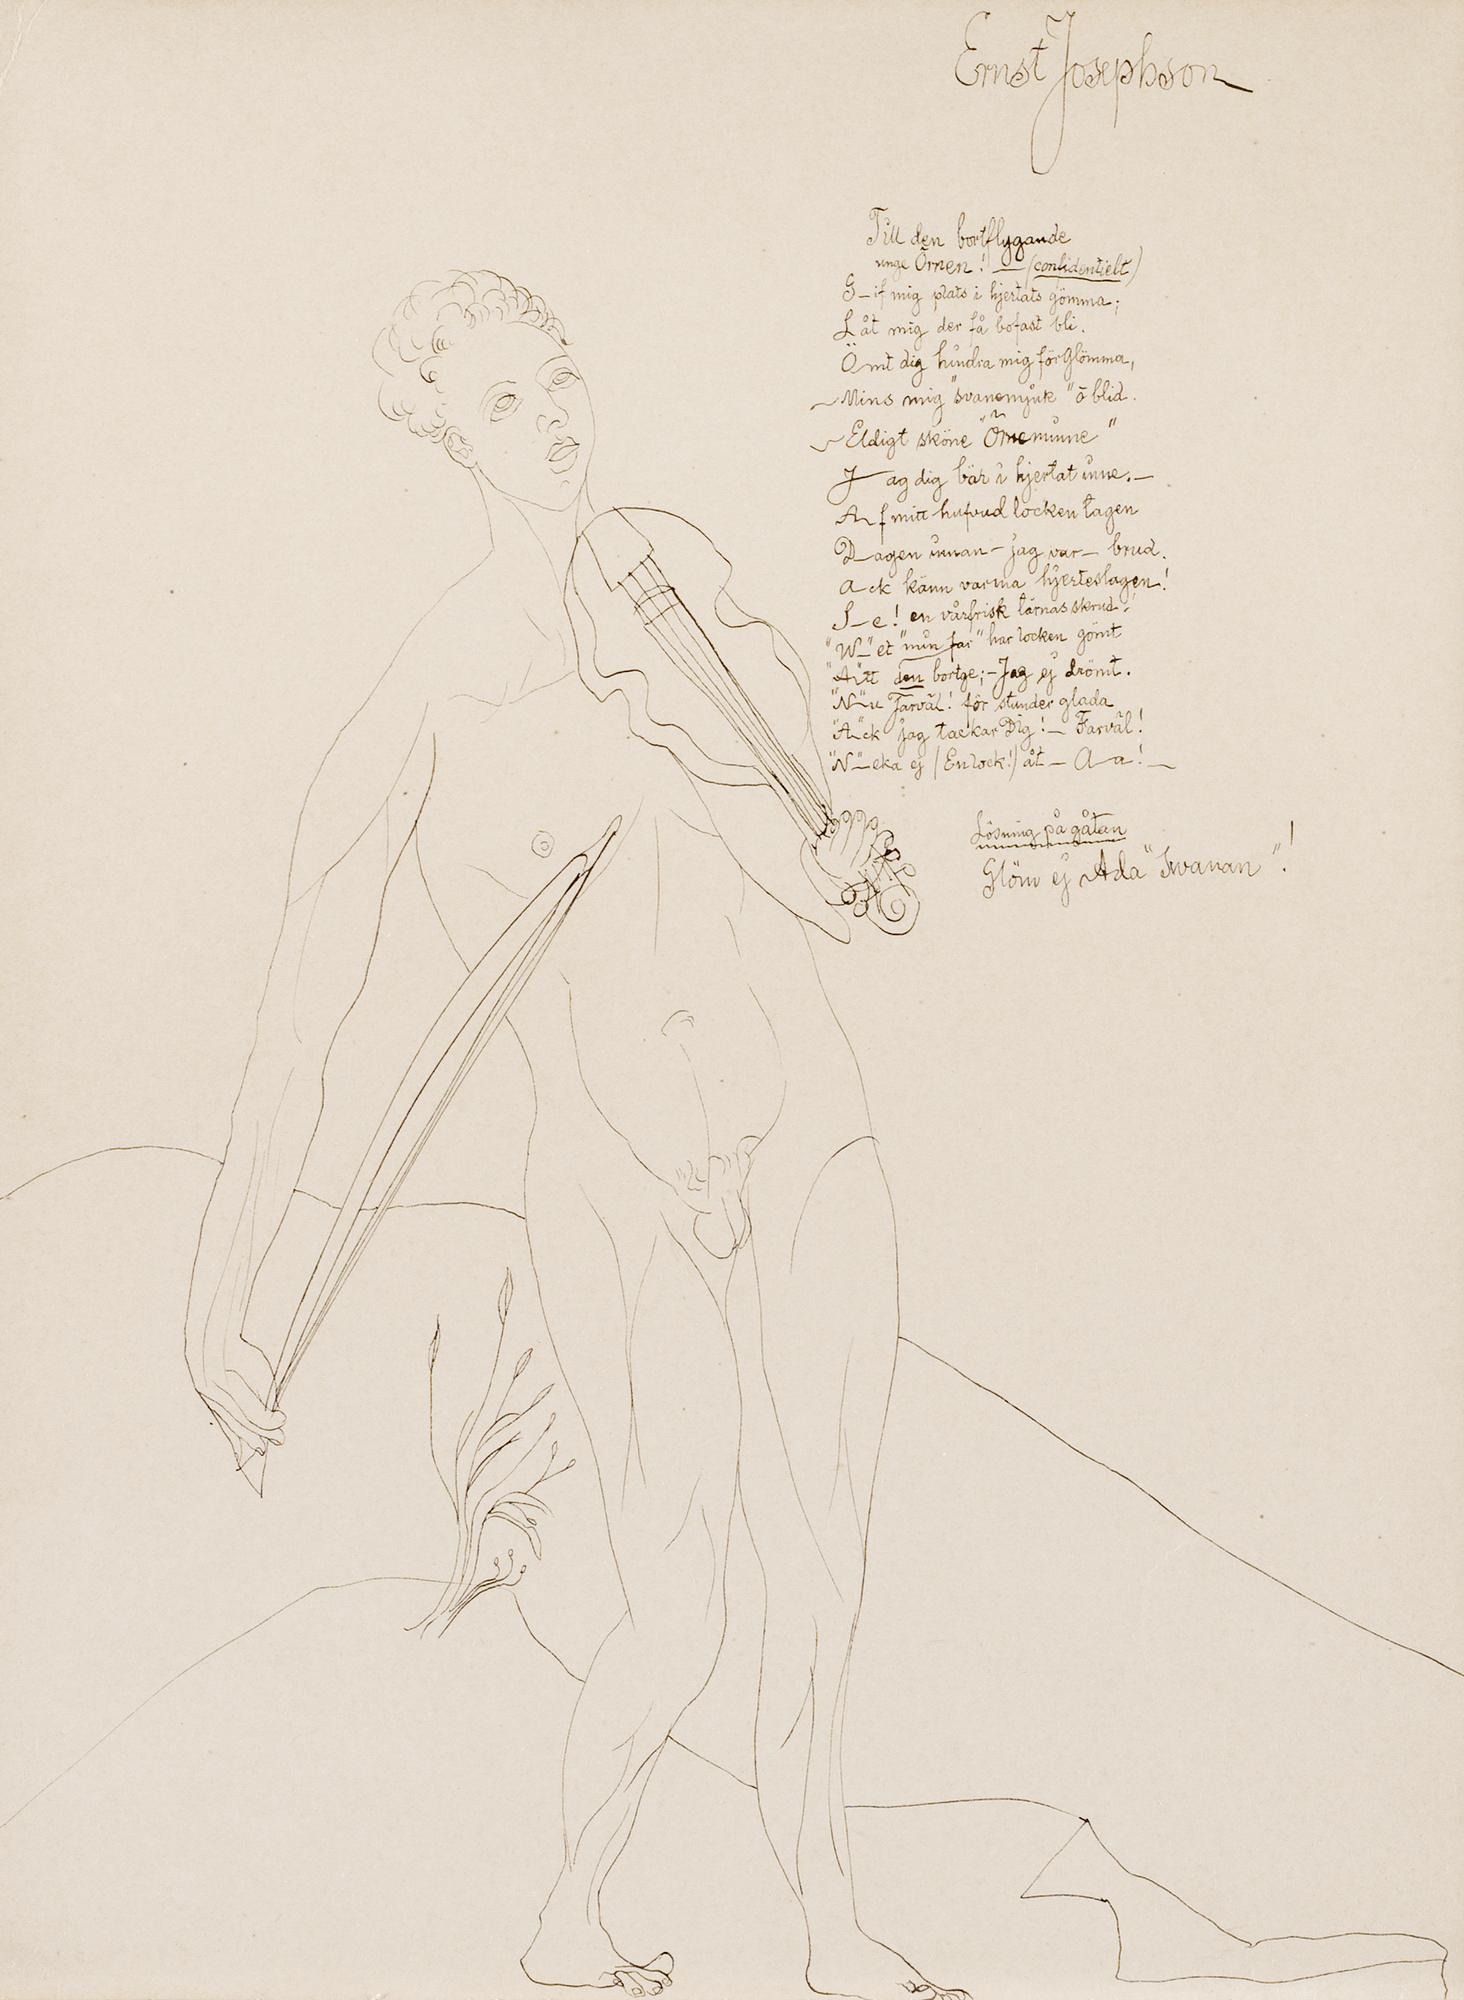 Ernst Josephson
Till den bortflygande
unge Örnen! — (confidentielt)
G–if mig plats i hjertats gömma;
Låt mig der få bofast bli.
Ömt dig hindra mig förGlömma,
Mins mig "svanemjuk" ö blid.
Eldigt sköne "Örneminne"
Jag dig bär i hjertat inne.—
Af mitt hufvud locken tagen
Dagen innan – jag var – brud.
Ack känn varma hjerteslagen!
S–e! en vårfrisk tärnas skrud!
"W"et "min far" har locken gömt
"A"tt den bortge; – Jag ej drömt.
"N"u Farväl! för stunder glada
"A"ck jag tackar Dig! – Farväl!
"N"–eka ej (En lock!) åt – A–a! —
Lösning på gåtan
Glöm ej Ada "Svanan"!